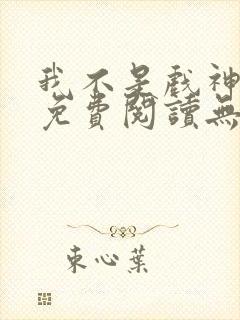 我不是戲神
免費閱讀無
東心葉